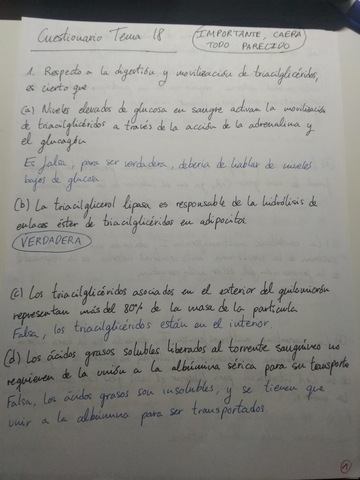 Cuestionario Tema 18
IMPORTANTE, CAERA
TODO PARECIDO
1. Respecto a la digestión y movilización de triacilglicéridos,
es cierto que
(a) Niveles elevados de glucosa en sangre activan la movilización
de triacilglicéridos a través de la acción de la adrenalina y
el glucagón
Es falsa, para ser verdadera, debería de hablar de niveles
bajos de glucosa.
(b) La triacilglicerol lipasa es responsable de la hidrólisis de
enlaces éster de triacilglicéridos en adipocitos
VERDADERA
(c) Los triacilglicéridos asociados en el exterior del quilomicrón
representan más del 80% de la masa de la partícula
Falsa, los triacilglicéridos están en el interior.
(d) Los ácidos grasos solubles liberados al torrente sanguíneo no
requieren de la unión a la albúmina sérica para su transporte
Falsa, los ácidos grasos son insolubles, y se tienen que
unir a la albúmina para ser transportados
1